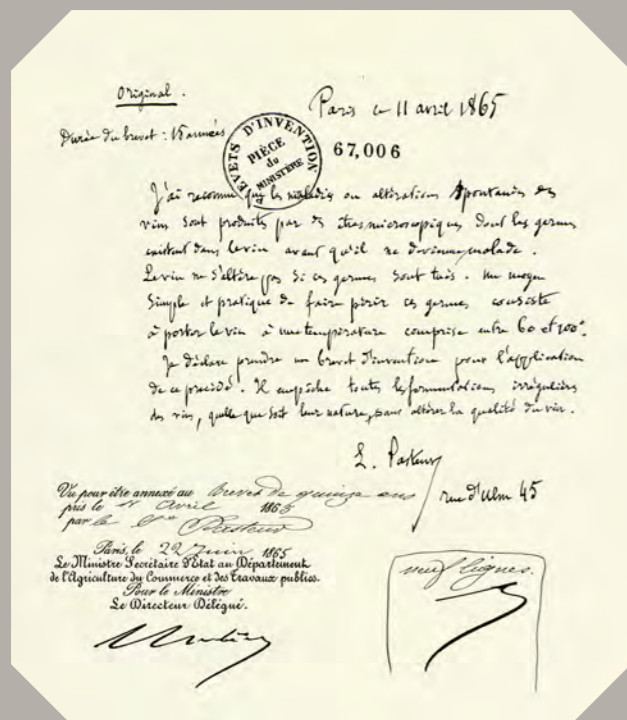 Original.
Paris ce 11 avril 1865
Durée du brevet : 15 années
BREVETS D'INVENTION
PIÈCE
du
MINISTERE
67,006
J'ai reconnu que les maladies ou altérations spontanées des
vins sont produits par des êtres microscopiques dont les germes
existent dans le vin avant qu'il ne devienne malade.
Le vin ne s'altère pas si ces germes sont tués. Un moyen
simple et pratique de faire périr ces germes consiste
à porter le vin à une température comprise entre 60 et 100°.
Je déclare prendre un brevet d'invention pour l'application
de ce procédé. Il empêche toutes les fermentations irrégulières
des vins, quelle que soit leur nature, sans altérer la qualité du vin.
L. Pasteur
rue d'Ulm 45
Vu pour être annexé au Brevet de quinze ans
pris le 11 Avril 1865
par le Pasteur
Paris, le 22 Juin 1865
Le Ministre Secrétaire d'Etat au Département
de l'Agriculture du Commerce et des Travaux publics.
Pour le Ministre
Le Directeur Délégué.
neuf lignes.